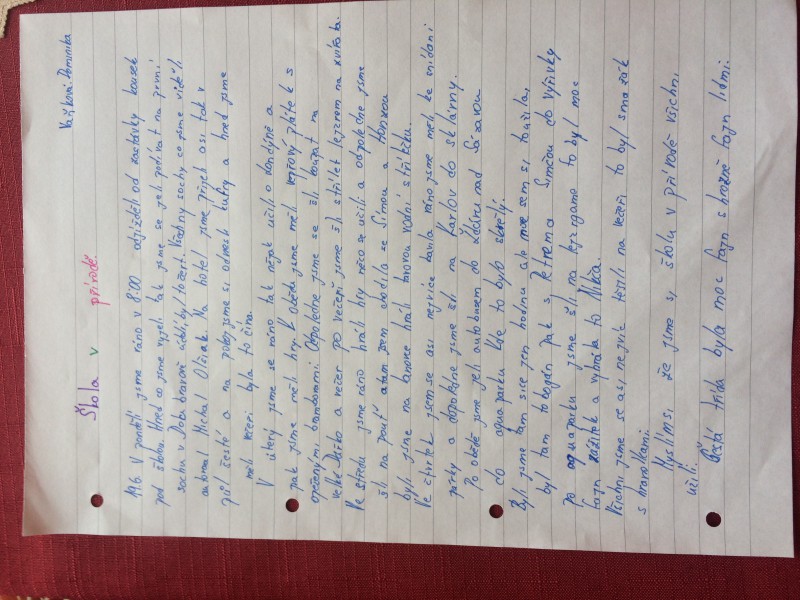 Vašková Dominika
Škola v přírodě.
19.6 V pondělí jsme ráno v 8:00 odjížděli od zastávky kousek
pod školou. Hned co jsme vyjeli tak jsme se jeli podívat na první
sochu v Dobu bronzové období, byl to žest. Všechny sochy co jsme viděli
Michal Olšiak. Na hotel jsme přijeli asi tak v
půl šesté a na pokoj jsme si odnesli kufry a hned jsme
měli večeři byla to čína.
V úterý jsme se ráno tak nějak učili o
pak jsme měli hry. K obědu jsme měli vepřový plátek s
opečenými bramborami. Odpoledne jsme se šli koukat na
Velké Dářko a večer po večeři jsme šli střílet lejzrem na zvířata.
Ve středu jsme ráno hráli hry něco se učili a odpoledne jsme
šli na pouť a tam jsem chodila se Simou a Honzou
byli jsme na hráli vodní střílečku.
Ve čtvrtek jsem se asi nejvíce bavila ráno jsme měli ke snídani
párky a dopoledne jsme šli na Karlov do sklárny.
Po obědě jsme jeli autobusem do Žďáru nad Sázavou
do aquaparku kde to bylo skvělý.
Byli jsme tam sice jen hodinu ale moc sem si to užila,
byl tam tobogán pak s Petrem a Simčou do vířivky
po aquaparku jsme šli na to byl moc
fajn zážitek a vyhrála to Nikča.
Všichni jsme se asi nejvíc těšili na večeři to byl smažák
s hranolkami.
Myslím si, že jsme si školu v přírodě všichni
užili.
Šestá třída byla moc fajn s hrozně fajn lidmi.